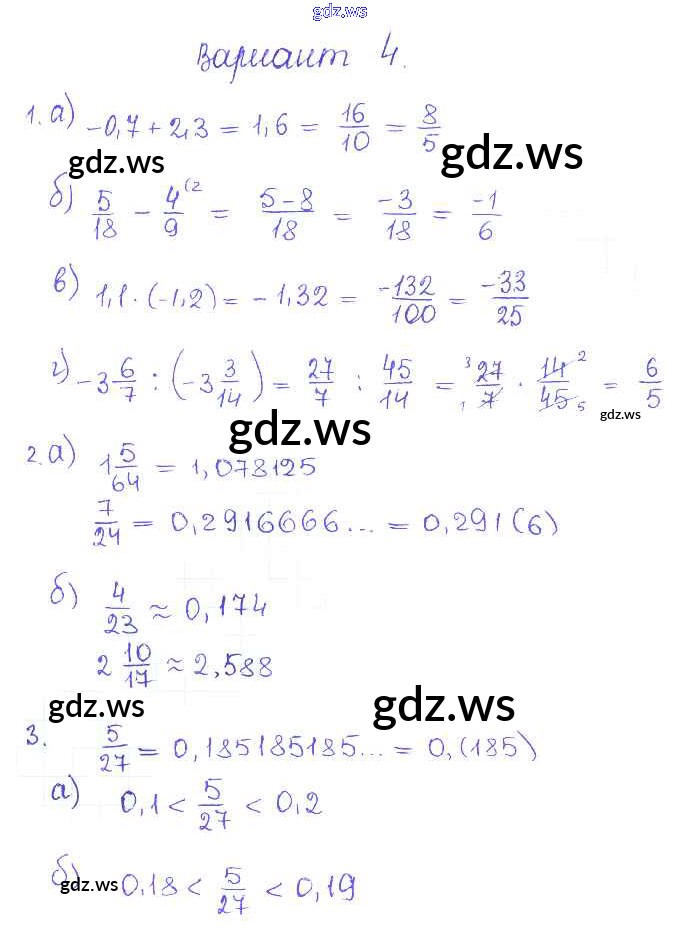 gdz.ws
Вариант 4.
1. а) -0,7 + 2,3 = 1,6 = 16/10 = 8/5
gdz.ws gdz.ws
б) 5/18 - 4/9 (2 = 5-8/18 = -3/18 = -1/6
в) 1,1 · (-1,2) = -1,32 = -132/100 = -33/25
г) -3 6/7 : (-3 3/14) = 27/7 : 45/14 = 3 27/7 1 · 14 2/45 5 = 6/5
gdz.ws gdz.ws
2. а) 1 5/64 = 1,078125
7/24 = 0,2916666... = 0,291(6)
б) 4/23 ≈ 0,174
2 10/17 ≈ 2,588
gdz.ws gdz.ws
3. 5/27 = 0,185185185... = 0,(185)
а) 0,1 < 5/27 < 0,2
б) 0,18 < 5/27 < 0,19
gdz.ws